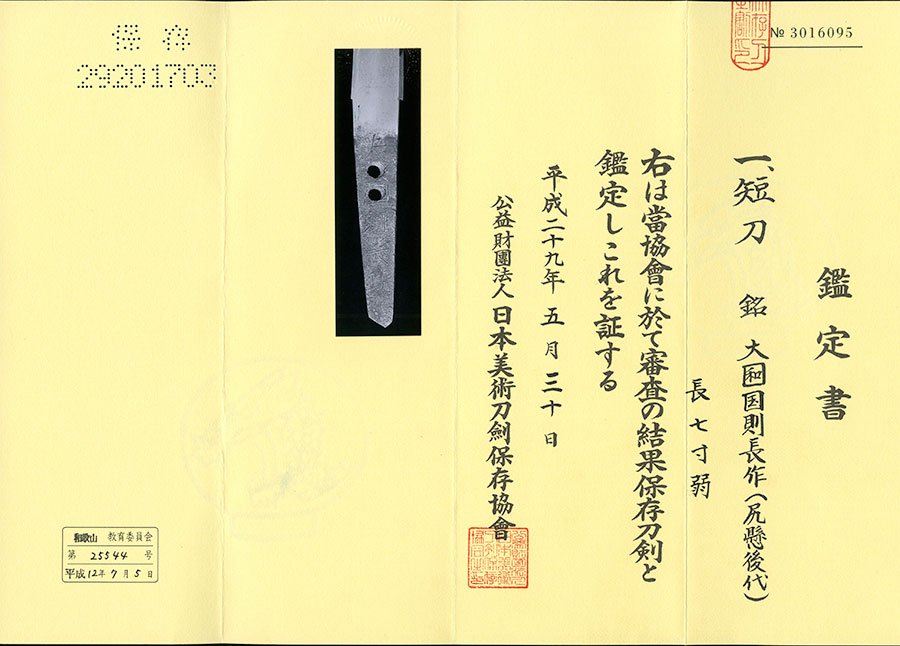 № 3016095
鑑定書
一、短刀 銘 大和国則長作(尻懸後代)
長七寸弱
右は當協會に於て審査の結果保存刀剣と
鑑定しこれを証する
平成二十九年五月三十日
公益財團法人日本美術刀劍保存協會
保存
29201703
和歌山 教育委員会
第 25544 号
平成12年7月5日